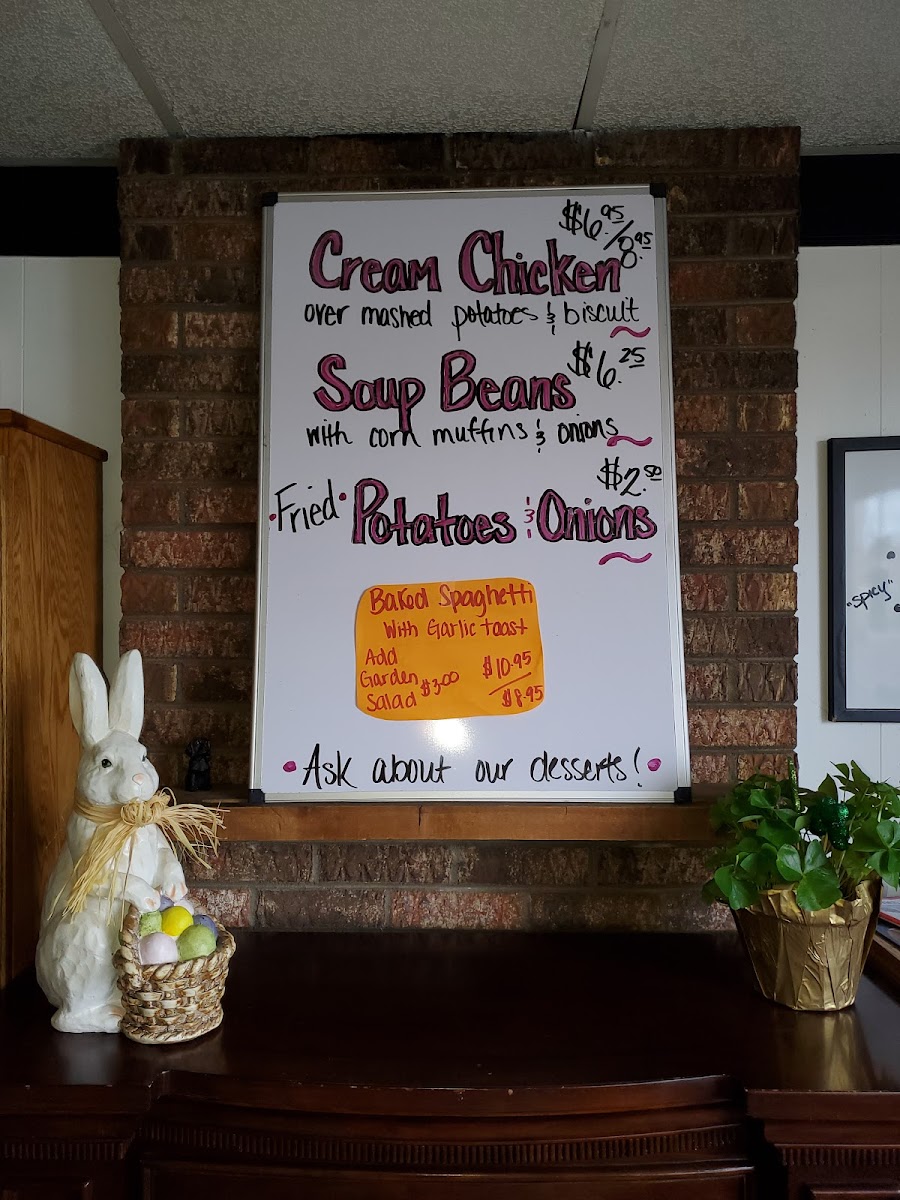 $6.95/8.95
Cream Chicken
over mashed potatoes & biscuit
Soup Beans $6.25
with corn muffins & onions
$2.50
•Fried• Potatoes & Onions
Baked Spaghetti
With Garlic toast
Add
Garden $3.00
Salad
$10.95
$8.95
• Ask about our desserts! •
"Spicy"